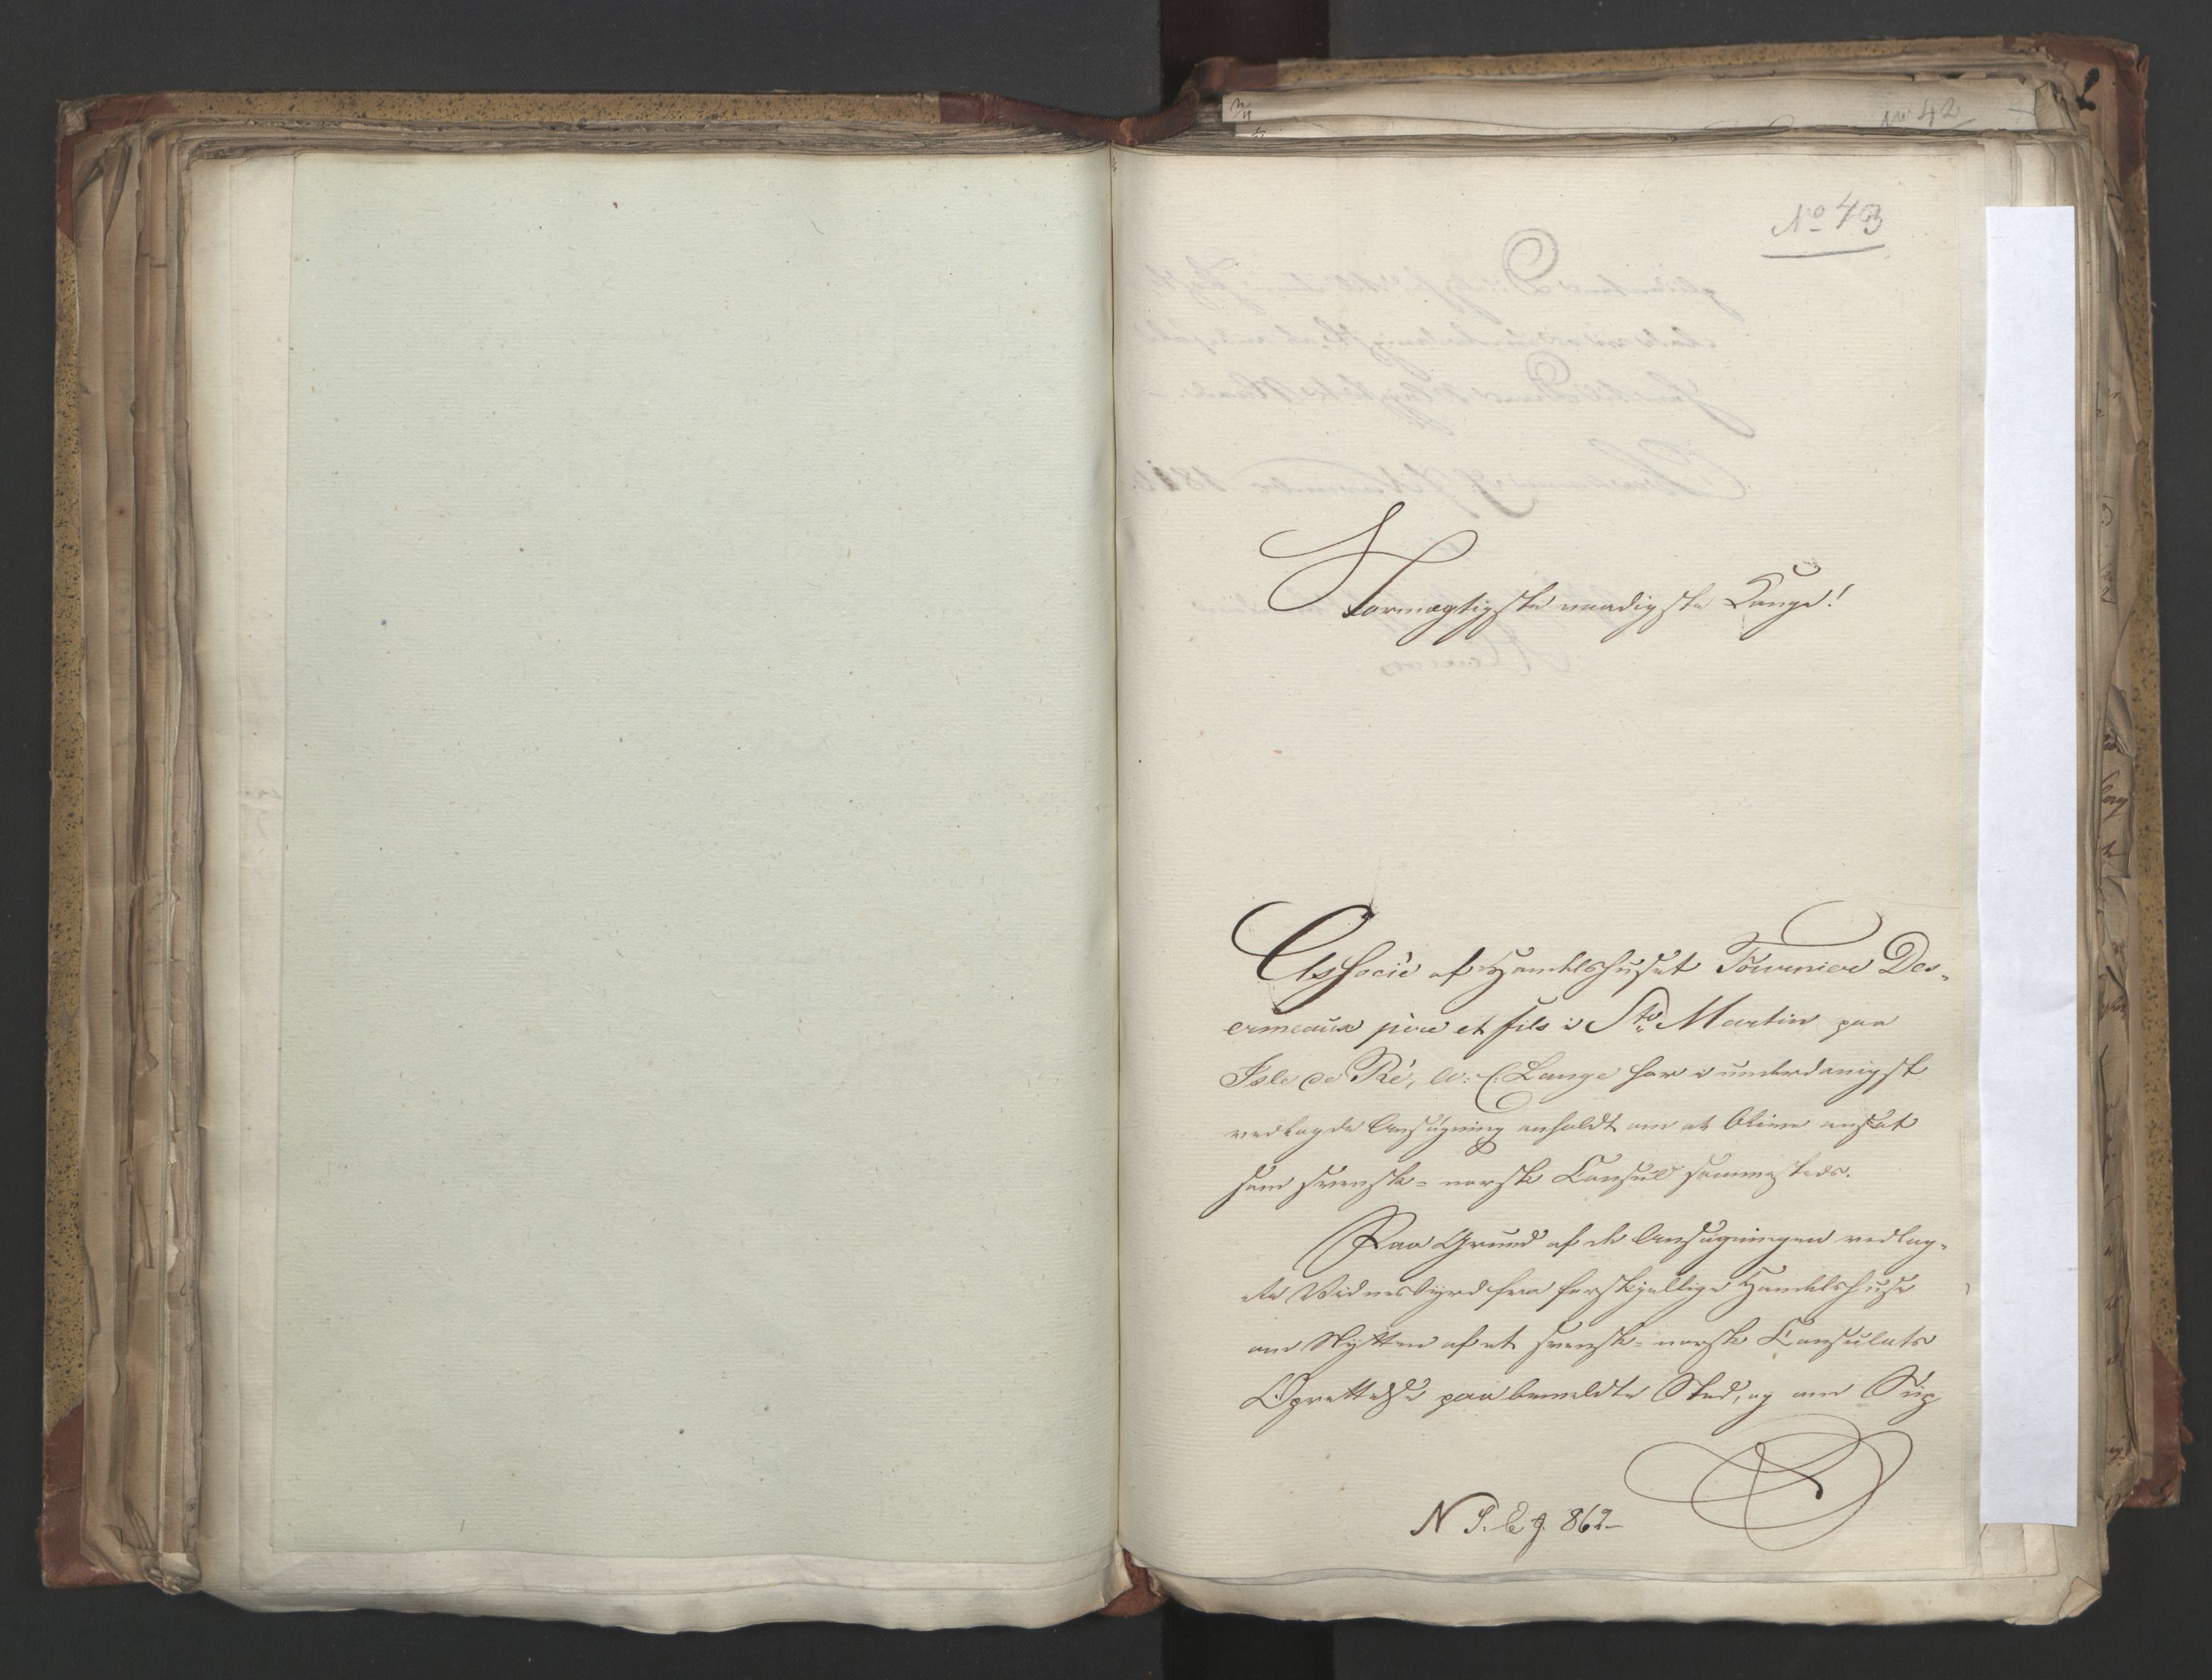 No 42
No 43
Stormægtigste naadigste Konge!
Associé af Handelshuset Fournier Des-
ermeaux père et fils i St. Martin paa
Isle de Ré, C. Lange har i underdanigst
vedlagde Ansøgning anholdt om at blive ansat
som svensk-norsk Consul sammesteds.
Paa Grund af de Ansøgningen vedlag-
te Vidnesbyrd fra forskjellige Handelshuse
om Nytten af et svensk-norsk Consulats
Oprettelse paa bemeldte Sted, og om Sup
N S. C. J. 862